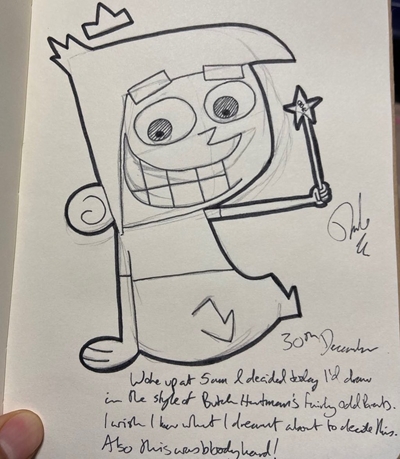 30th December
Woke up at 5am & decided today I'd draw
in the style of Butch Hartman's fairly odd Parents.
I wish I knew what I dreamt about to decide this.
Also this was bloody hard!